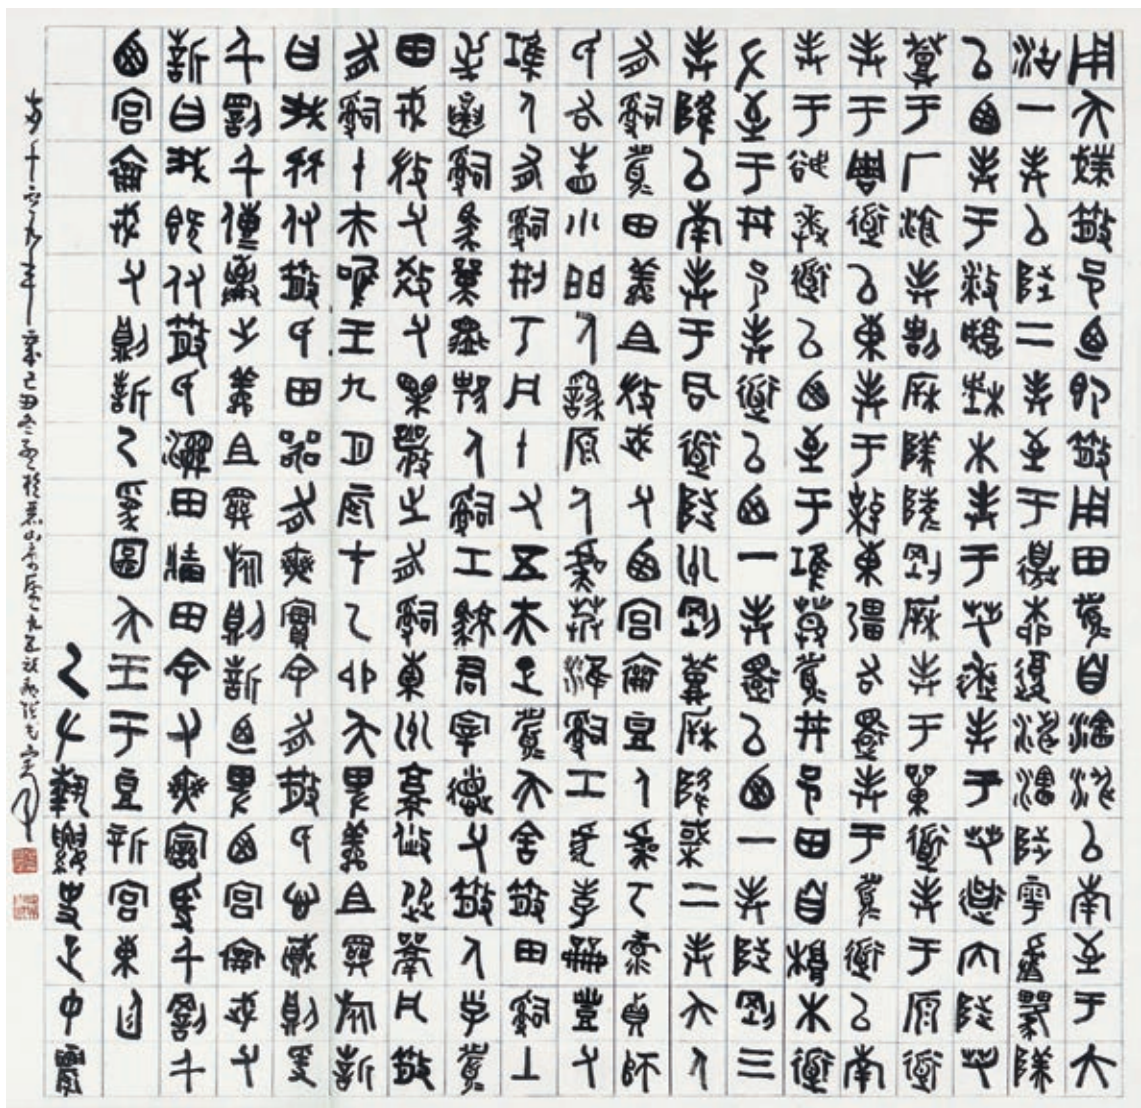 用夨散邑廼即散用田眉自瀗涉以南至于大
沽一奉以陟二奉至于邊柳復涉瀗陟雩
以西奉于播城楮木奉于芻逨奉于芻道内陟芻
登于厂湶奉諸陵剛奉于單道奉于原道
奉于周道以東奉于東疆右還奉于眉道以南
奉于逨道以西至于鴻莫眉井邑田自根木道
左至于井邑奉道以西一奉還以西一奉陟剛三
奉降以南奉于同道陟州剛登降棫二奉夨人
有司眉田鮮且微武父西宮襄豆人虞丂录貞師
氏右眚小門人繇原人虞艿淮司工虎孝龠豐父
鴻人有司井丂凡十又五夫正眉夨舍散田司土
屰司馬人司工君宰德父散人小子眉
田戎微父效父襄之有司橐州倏從凡散
有司十夫唯王九月辰在乙卯夨卑鮮且旅誓
曰我付散氏田器有爽實余有散氏心賊則爰
千罰千傳棄之鮮且旅則誓廼卑西宮襄武父
誓曰我既付散氏濕田牆田余有爽䜌爰千罰千
西宮襄武父則誓厥受圖夨王于豆新宮東廷
厥左執縷史正中農